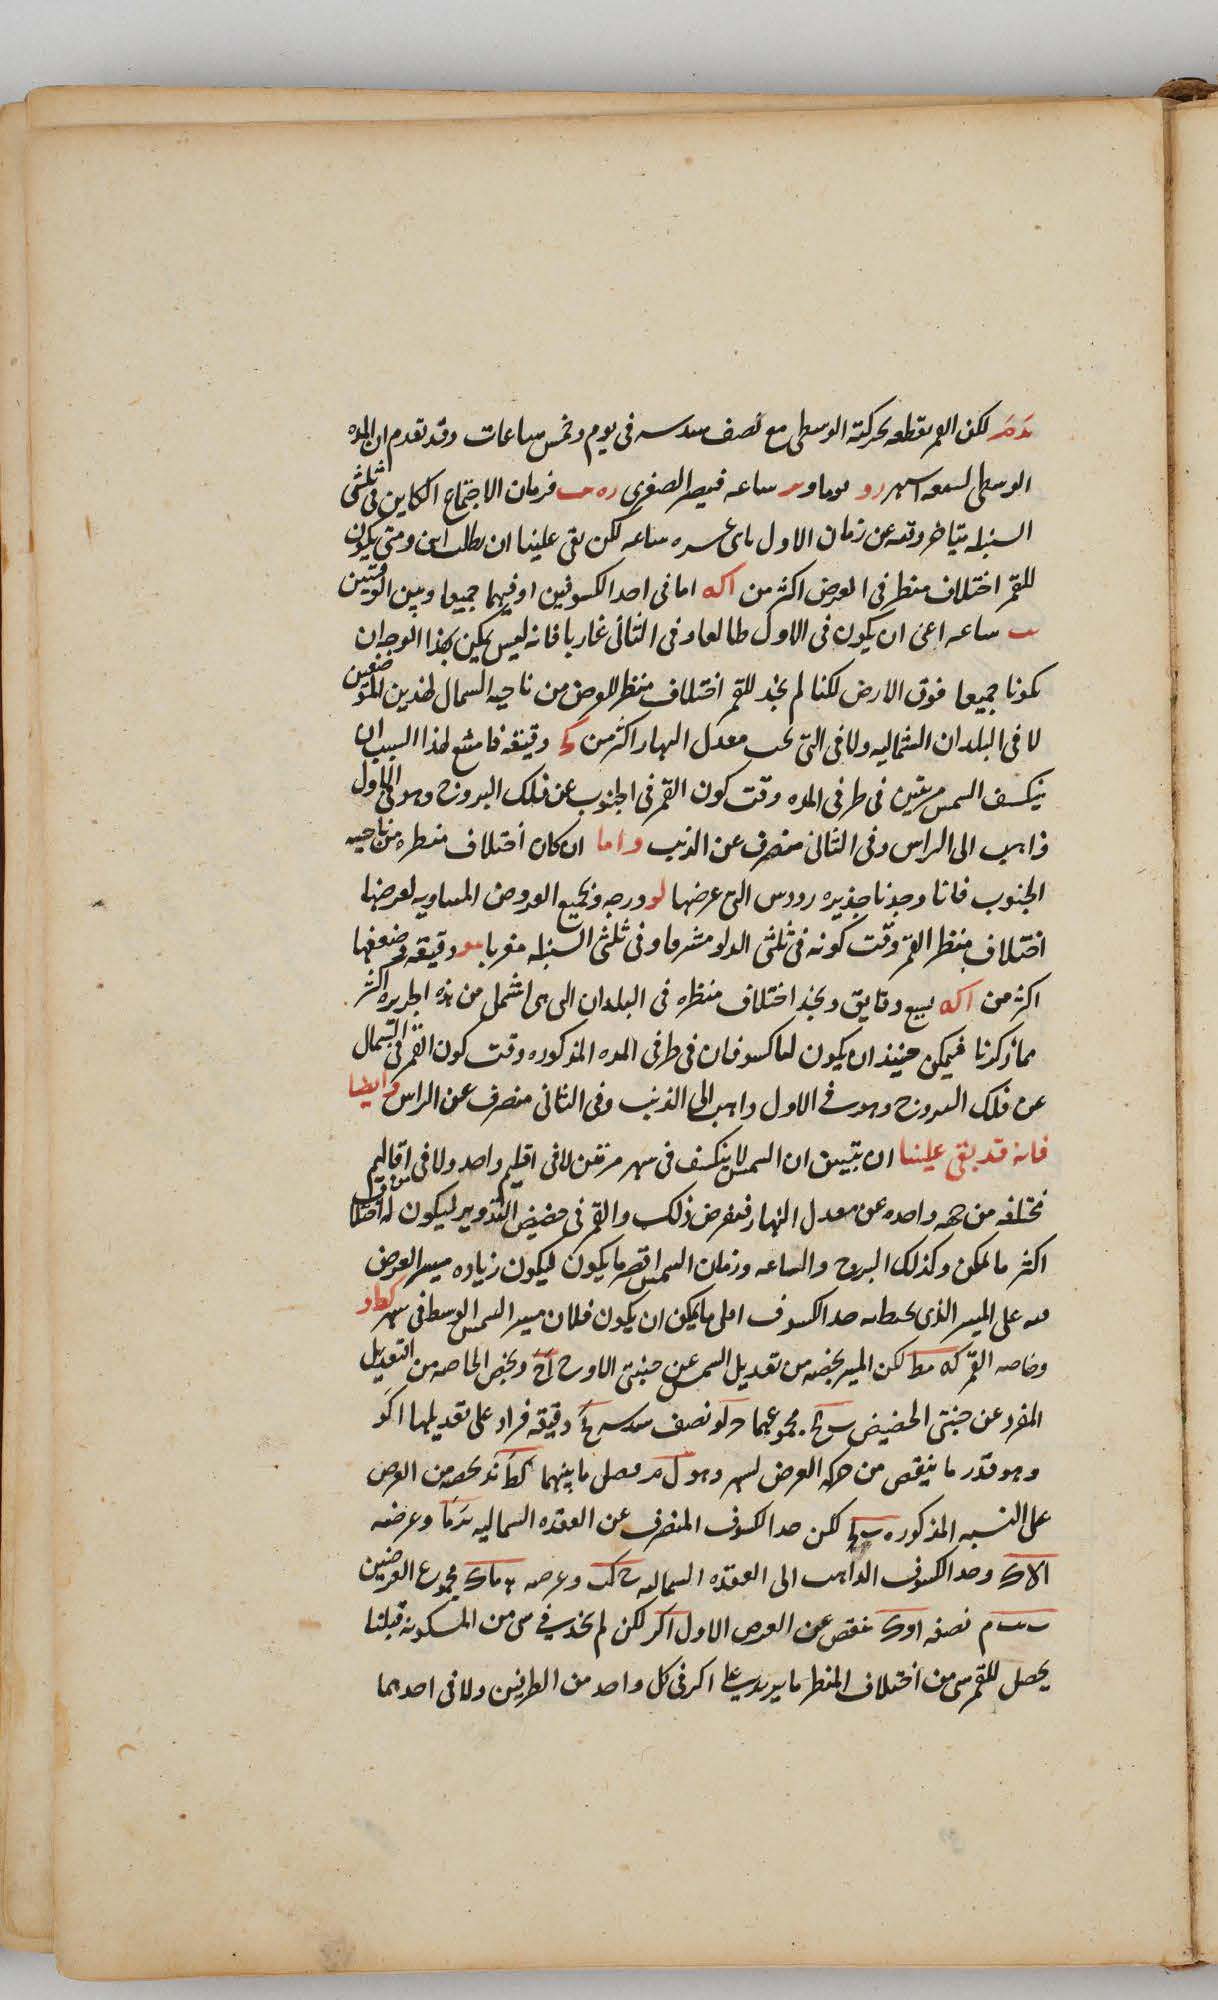 لكن القمر يقطعه بحركته الوسطى مع نصف سدسه فى يوم وخمس ساعات وقد تقدم ان المده
الوسطى لسبعه اشهر يوما و ساعه فيصير الصغرى فزمان الاجتماع الكاين فى ثلثى
السنبله يتاخر وقته عن زمان الاول ساعه لكن بقى علينا ان نطلب اين ومتى يكون
للقمر اختلاف منظر فى العرض اكثر من اكه اما فى احد الكسوفين او فيهما جميعا وبين الوقتين
ساعه اعنى ان يكون فى الاول طالعا وفى الثانى غاربا فانه ليس يمكن بهذا الوجه ان
يكونا جميعا فوق الارض لكنا لم نجد للقمر اختلاف منظر للعرض من ناحيه الشمال لهذين الموضعين
لا فى البلدان الشماليه ولا فى التى تحت معدل النهار اكثر من دقيقه فامتنع لهذا السبب ان
ينكسف الشمس مرتين فى طرفى المده وقت كون القمر فى الجنوب عن فلك البروج وهو فى الاول
ذاهب الى الراس وفى الثانى منصرف عن الذنب واما ان كان اختلاف منظره من ناحيه
الجنوب فانا وجدنا جزيره رودس التى عرضها لو درجه وجميع العروض المساويه لعرضها
اختلاف منظر القمر وقت كونه فى ثلثى الدلو مشرقا وفى ثلثى السنبله مغربا مو دقيقه وضعفها
اكثر من اكه بسبع دقايق ونجد اختلاف منظره فى البلدان التى هى اشمل من هذه الجزيره اكثر
مما ذكرنا فيمكن حينئذ ان يكون لها كسوفان فى طرفى المده المذكوره وقت كون القمر فى الشمال
عن فلك البروج وهو فى الاول ذاهب الى الذنب وفى الثانى منصرف عن الراس وايضا
فانه قد بقى علينا ان نتبين ان الشمس لا ينكسف فى شهر مرتين لا فى اقليم واحد ولا فى اقاليم
مختلفه من جهه واحده عن معدل النهار فنفرض ذلك والقمر فى حضيض التدوير ليكون له اختلاف منظر
اكثر ما يمكن وكذلك البروج والساعه وزمان الشمس اقصر ما يكون ليكون زياده مسير العرض
فيه على المسير الذى يحيط به حد الكسوف اقل ما يمكن ان يكون فلان مسير الشمس الوسط فى شهر كط و
وخاصه القمر كه مط لكن المسير يخصه من تعديل الشمس عن جنبتى الاوج ويخص الخاصه من التعديل
المفرد عن جنبتى الحضيض مجموعهما نصف سدس دقيقه فزاد على تعديلها
وهو قدر ما ينقص من حركه العرض لشهر وهو ل م فصل ما بينهما كط يخصه من العرض
على النسبه المذكوره لكن حد الكسوف المنصرف عن العقده الشماليه وعرضه
وحد الكسوف الذاهب الى العقده الشماليه وعرضه مجموع العرضين
نصفه ينقص عن العرض الاول لكن لم نجد فى شى من المسكونه قبلنا
يحصل للقمر شى من اختلاف المنظر ما يزيد على فى كل واحد من الطرفين ولا فى احدهما